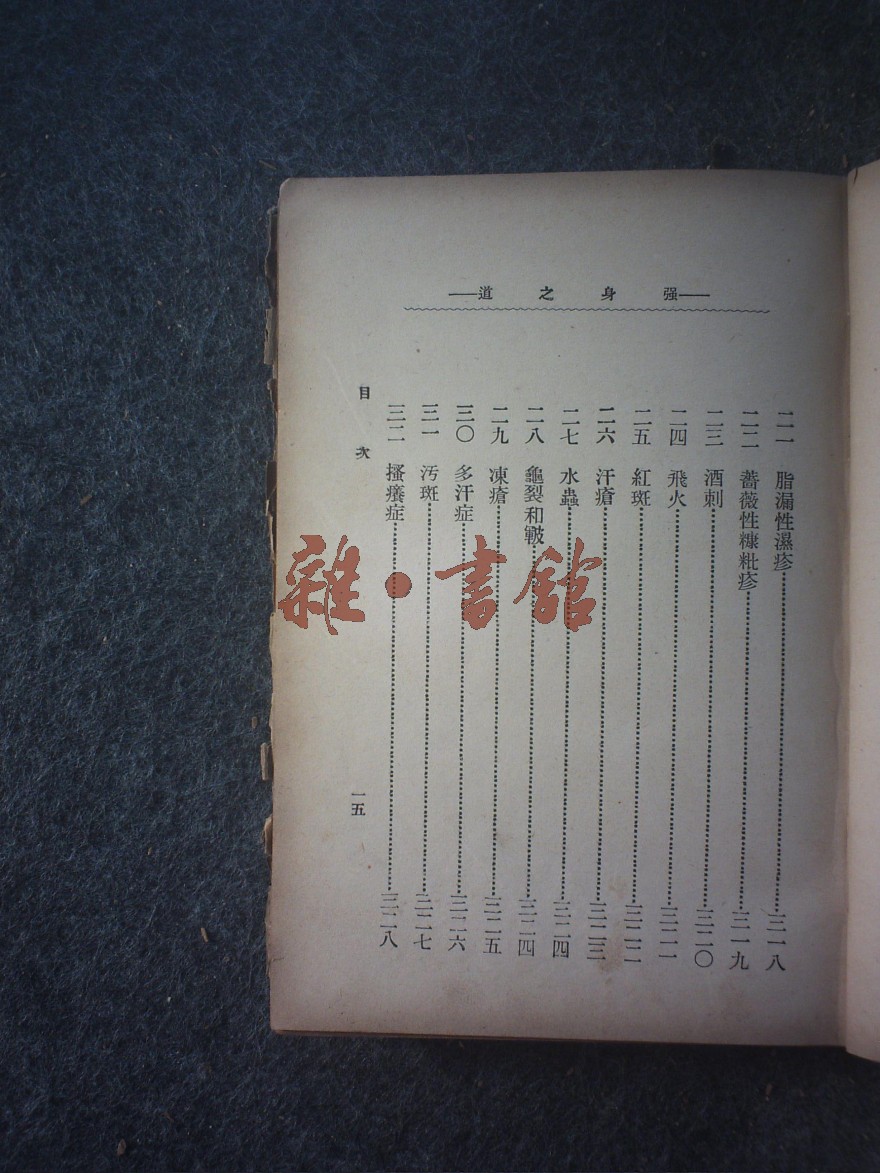 ——強身之道——
二一 脂漏性濕疹……三一八
二二 薔薇性糠粃疹……三一九
二三 酒刺……三二〇
二四 飛火……三二一
二五 紅斑……三二二
二六 汗瘡……三二三
二七 水蟲……三二四
二八 龜裂和皸……三二四
二九 凍瘡……三二五
三〇 多汗症……三二六
三一 汚斑……三二七
三二 搔癢症……三二八
目次
一五
雜·書館